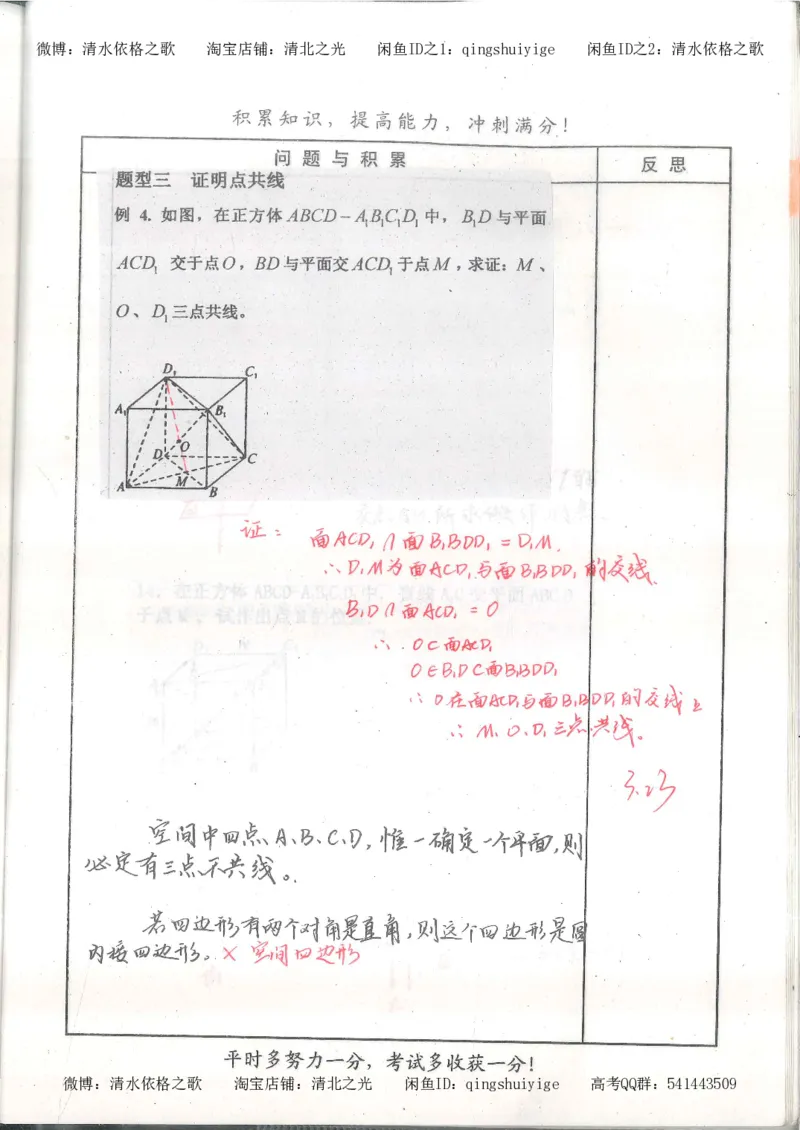 微博：清水依格之歌 淘宝店铺：清北之光 闲鱼ID之1：qingshuiyige 闲鱼ID之2：清水依格之歌
积累知识，提高能力，冲刺满分！
问题与积累 反思
题型三 证明点共线
例 4. 如图，在正方体 ABCD-A₁B₁C₁D₁ 中，B₁D 与平面
ACD₁ 交于点O，BD 与平面交 ACD₁ 于点 M，求证：M、
O、D₁ 三点共线。
D₁ C₁
A₁ B₁
O
D C
M
A B
证： 面ACD₁∩面B₁BDD₁=D₁M.
∴D₁M为面ACD₁与面B₁BDD₁的交线.
B₁D∩面ACD₁=O
∴.O⊂面ACD₁
O∈B₁D⊂面B₁BDD₁
∴O在面ACD₁与面B₁BDD₁的交线上
∴M、O、D₁三点共线。
3.23
空间中四点A、B、C、D，惟一确定一个平面，则
必定有三点不共线。
若四边形有两个对角是直角，则这个四边形是圆
内接四边形。× 空间四边形
平时多努力一分，考试多收获一分！
微博：清水依格之歌 淘宝店铺：清北之光 闲鱼ID：qingshuiyige 高考QQ群：541443509